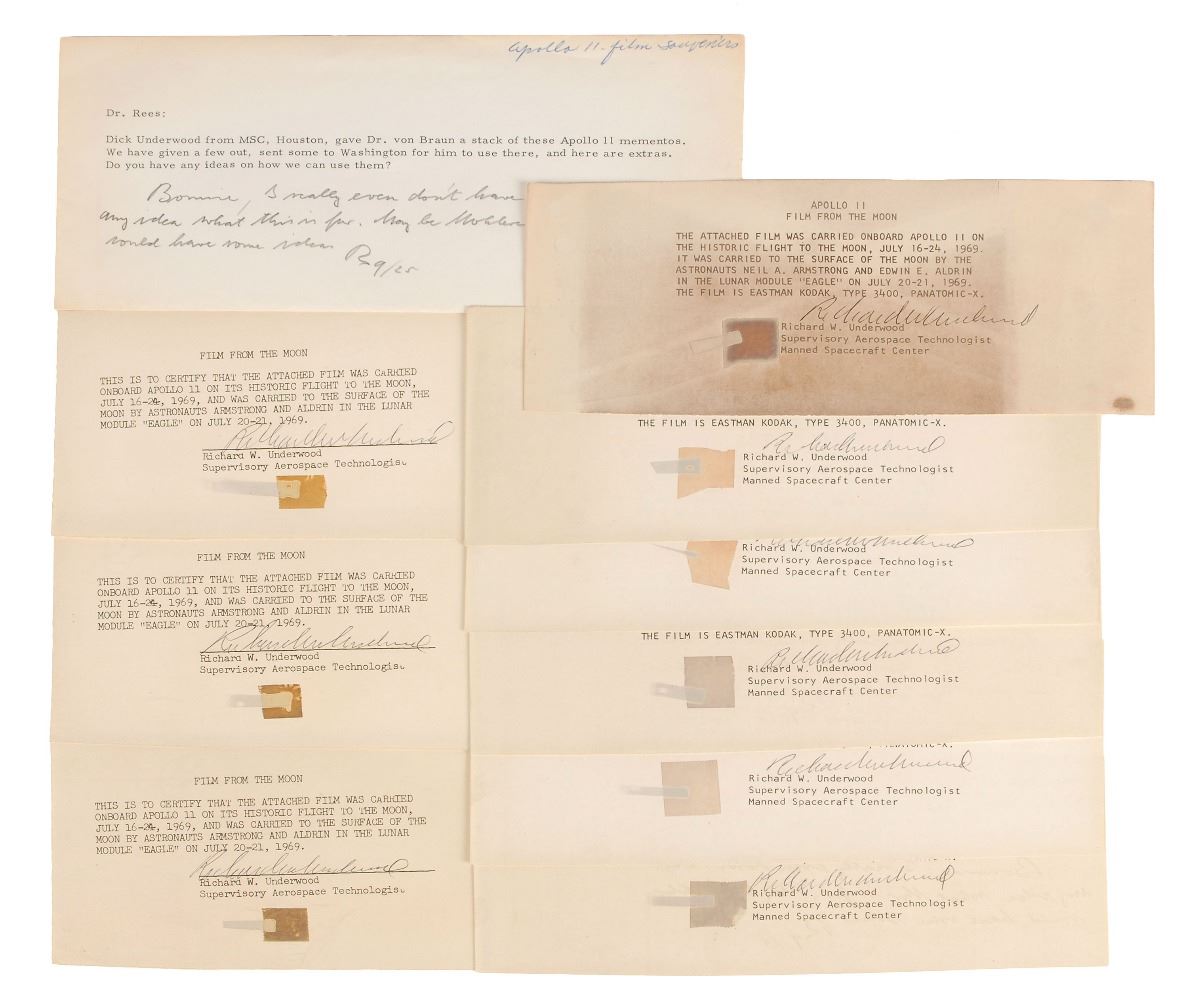 Apollo 11 - film souvenirs
Dr. Rees:
Dick Underwood from MSC, Houston, gave Dr. von Braun a stack of these Apollo 11 mementos.
We have given a few out, sent some to Washington for him to use there, and here are extras.
Do you have any ideas on how we can use them?
Bonnie, I really even don't have
any idea what this is for. May be
would have some ideas
R 9/25
APOLLO 11
FILM FROM THE MOON
THE ATTACHED FILM WAS CARRIED ONBOARD APOLLO 11 ON
THE HISTORIC FLIGHT TO THE MOON, JULY 16-24, 1969.
IT WAS CARRIED TO THE SURFACE OF THE MOON BY THE
ASTRONAUTS NEIL A. ARMSTRONG AND EDWIN E. ALDRIN
IN THE LUNAR MODULE "EAGLE" ON JULY 20-21, 1969.
THE FILM IS EASTMAN KODAK, TYPE 3400, PANATOMIC-X.
Richard W Underwood
Richard W. Underwood
Supervisory Aerospace Technologist
Manned Spacecraft Center
FILM FROM THE MOON
THIS IS TO CERTIFY THAT THE ATTACHED FILM WAS CARRIED
ONBOARD APOLLO 11 ON ITS HISTORIC FLIGHT TO THE MOON,
JULY 16-24, 1969, AND WAS CARRIED TO THE SURFACE OF THE
MOON BY ASTRONAUTS ARMSTRONG AND ALDRIN IN THE LUNAR
MODULE "EAGLE" ON JULY 20-21, 1969.
Richard W Underwood
Richard W. Underwood
Supervisory Aerospace Technologist
FILM FROM THE MOON
THIS IS TO CERTIFY THAT THE ATTACHED FILM WAS CARRIED
ONBOARD APOLLO 11 ON ITS HISTORIC FLIGHT TO THE MOON,
JULY 16-24, 1969, AND WAS CARRIED TO THE SURFACE OF THE
MOON BY ASTRONAUTS ARMSTRONG AND ALDRIN IN THE LUNAR
MODULE "EAGLE" ON JULY 20-21, 1969.
Richard W Underwood
Richard W. Underwood
Supervisory Aerospace Technologist
FILM FROM THE MOON
THIS IS TO CERTIFY THAT THE ATTACHED FILM WAS CARRIED
ONBOARD APOLLO 11 ON ITS HISTORIC FLIGHT TO THE MOON,
JULY 16-24, 1969, AND WAS CARRIED TO THE SURFACE OF THE
MOON BY ASTRONAUTS ARMSTRONG AND ALDRIN IN THE LUNAR
MODULE "EAGLE" ON JULY 20-21, 1969.
Richard W Underwood
Richard W. Underwood
Supervisory Aerospace Technologist
THE FILM IS EASTMAN KODAK, TYPE 3400, PANATOMIC-X.
Richard W Underwood
Richard W. Underwood
Supervisory Aerospace Technologist
Manned Spacecraft Center
Richard W Underwood
Richard W. Underwood
Supervisory Aerospace Technologist
Manned Spacecraft Center
THE FILM IS EASTMAN KODAK, TYPE 3400, PANATOMIC-X.
Richard W Underwood
Richard W. Underwood
Supervisory Aerospace Technologist
Manned Spacecraft Center
PANATOMIC-X.
Richard W Underwood
Richard W. Underwood
Supervisory Aerospace Technologist
Manned Spacecraft Center
Richard W Underwood
Richard W. Underwood
Supervisory Aerospace Technologist
Manned Spacecraft Center